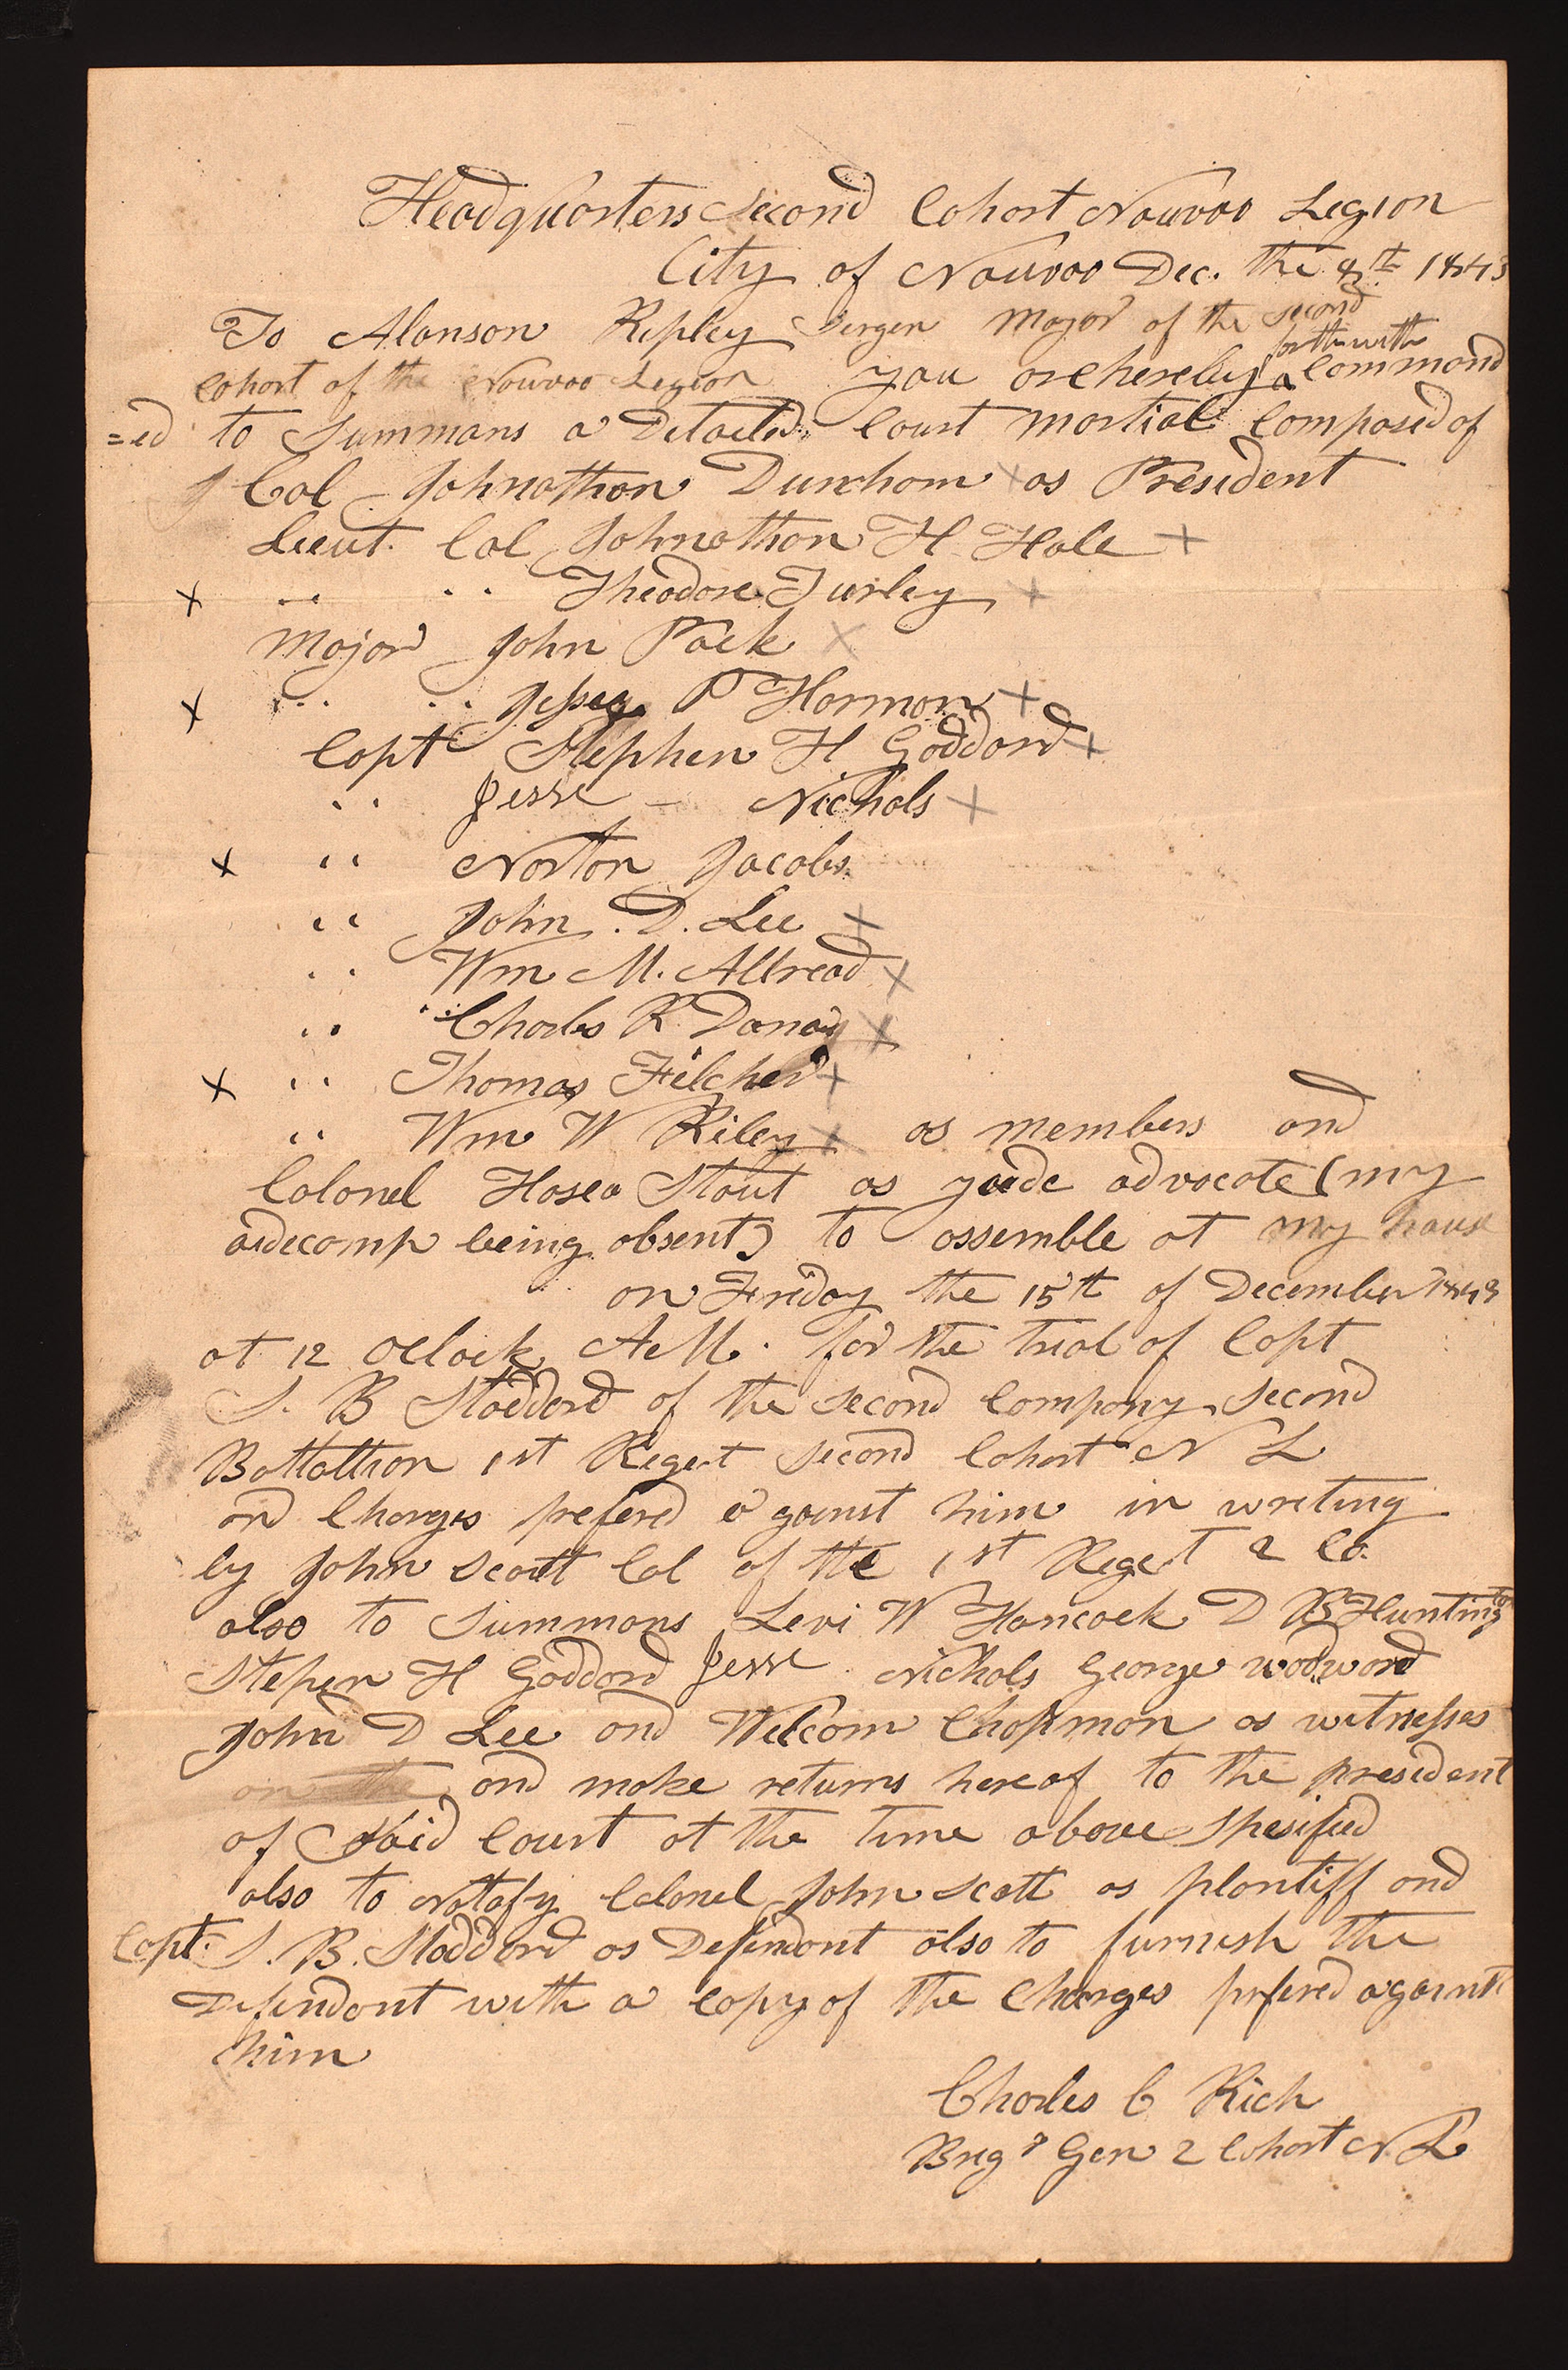 Headquarters Second Cohort Nauvoo Legion
City of Nauvoo Dec. the 8th 1843
To Alanson Ripley Sergen Major of the second
forthwith
cohort of the Nauvoo Legion you are hereby ^ command
=ed to Summans a Detailed Court Martial Composed of
Col Johnathan Dunham x as President
Lieut. Col Johnathan H Hale +
x " " Theodore Turley +
Major John Pack x
x " " Jessey P Harmon +
Capt Stephen H Goddard +
" Jesse – Nichols +
x " Norton Jacobs
" John . D. Lee +
" Wm M. Allread x
" Charles R Danay x
x " Thomas Filcher +
" Wm W Riley x as members and
Colonel Hosea Stout as advocate (my
aidecamp being absent) to assemble at my house
on Friday the 15th of December 1843
at 12 Oclock A.M. for the trial of Capt
S. B Stoddard of the second Company second
Battallion 1st Regt second Cohort N L
on Charges prefered against him in writing
by John Scott Col of the 1st Regt 2 Co.
also to Summons Levi W Hancock D B Huntington
Stephen H Goddard Jesse Nichols George wodward
John D Lee and Welcom Chapman as witnesses
on the and make returns hereof to the president
of Said Court at the time above spesified
also to Notafy Colonel John Scott as plantiff and
Capt. S. B. Stoddard as Defendant also to furnish the
Defendant with a copy of the Charges prefered against
him
Charles C Rich
Brig Gen 2 Cohort N L